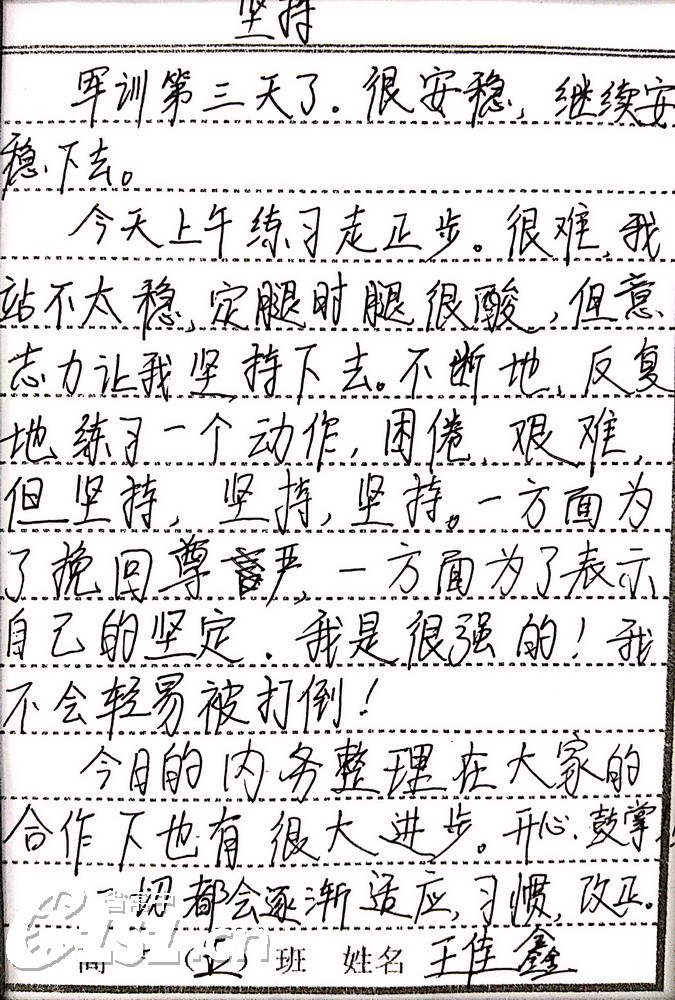 坚持
军训第三天了.很安稳,继续安
稳下去。
今天上午练习走正步。很难,我
站不太稳,定腿时腿很酸,但意
志力让我坚持下去。不断地、反复
地练习一个动作,困倦、艰难,
但坚持,坚持,坚持。一方面为
了挽回尊严,一方面为了表示
自己的坚定.我是很强的!我
不会轻易被打倒!
今日的内务整理在大家的
合作下也有很大进步。开心、鼓掌
一切都会逐渐适应,习惯,改正。
高一(五)班 姓名 王佳鑫